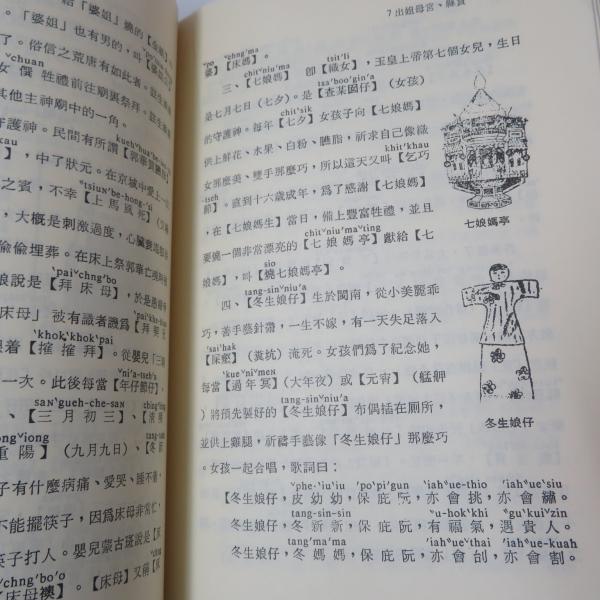 給「婆姐」燒的【金
「婆姐」也有男的，叫
了。俗信之荒唐有如此者。
ˇchuan
女 饌 牲禮前往廟裏祭拜。
其他主神廟中的一角。
守護神。民間有所謂【郭華
kau
，中了狀元。在京城中愛上一
之賓，不幸【上馬風死】
，大概是刺激過度，心臟衰
偷偷埋葬。在床上祭郭華亡魂
ˈpaiˇchngˈbo
娘說是【拜床母】，於是愚
床母」被有識者譏為【拜
ˈkhokˈkhokˈpai
著【摧摧拜】。從嬰兒「三
ˇniˈa-tsehˈa
一次。此後每當【年仔節仔】，
saɴˈgueh-che-saɴ
、【三月初三】、【清
重陽】（九月九日）、【冬
子有什麼病痛、愛哭、睡不著，
不能擺筷子，因為床母非常忙，
筷子打人。嬰兒蒙古斑說是
chngˈboˈo
床母襖】。【床母】又稱
7 出姐母宮、縣賞
ˇpo ˇchngˈma
婆】【床媽】。
chitˇniuˈma tsitˈli
三、【七娘媽】 卽【織女】，玉皇上帝第七個女兒，生日
tsaˈbooˈginˈa
是七月七日（七夕）。是【查某囡仔】（女孩）
chitˈsik
的守護神。每年【七夕】女孩子向【七娘媽】
供上鮮花、水果、白粉、臙脂，祈求自己像織
khitˈkhau
女那麼美、雙手那麼巧，所以這天又叫【乞巧
tseh
節】。直到十六歲成年，爲了感謝【七娘媽】
，在【七娘媽生】當日，備上豐富牲禮，並且
chitˇniuˈmaˇting
要燒一個非常漂亮的【七娘媽亭】獻給【七
sio
娘媽】，叫【燒七娘媽亭】。
七娘媽亭
tang-sinˇniuˈa
四、【冬生娘仔】生於閩南，從小美麗乖
巧，善手藝針黹，一生不嫁，有一天失足落入
ˈsaiˈhak
【屎壑】（糞坑）淹死。女孩們爲了紀念她，
ˈkueˈniˇmen
每當【過年冥】（大年夜）或【元宵】（艋舺
tang-sinˇniuˈa
）將預先製好的【冬生娘仔】布偶插在厠所，
並供上雞腿，祈禱手藝像「冬生娘仔」那麼巧
。女孩一起合唱，歌詞曰：
冬生娘仔
ˇphe-ˈiuˈiu ˈpoˈpiˈgun ˈiahˈue-thio ˈiahˈueˈsiu
【冬生娘仔，皮幼幼，保庇阮，亦會挑，亦會繡。
tang-sin-sin ˈu-hokˈkhi ˇguˈkuiˇzin
冬生娘仔，冬新新，保庇阮，有福氣，遇貴人。
tangˈmaˈma ˈiahˈueˇthai ˈiahˈue-kuah
冬生娘仔，冬媽媽，保庇阮，亦會刣，亦會割。